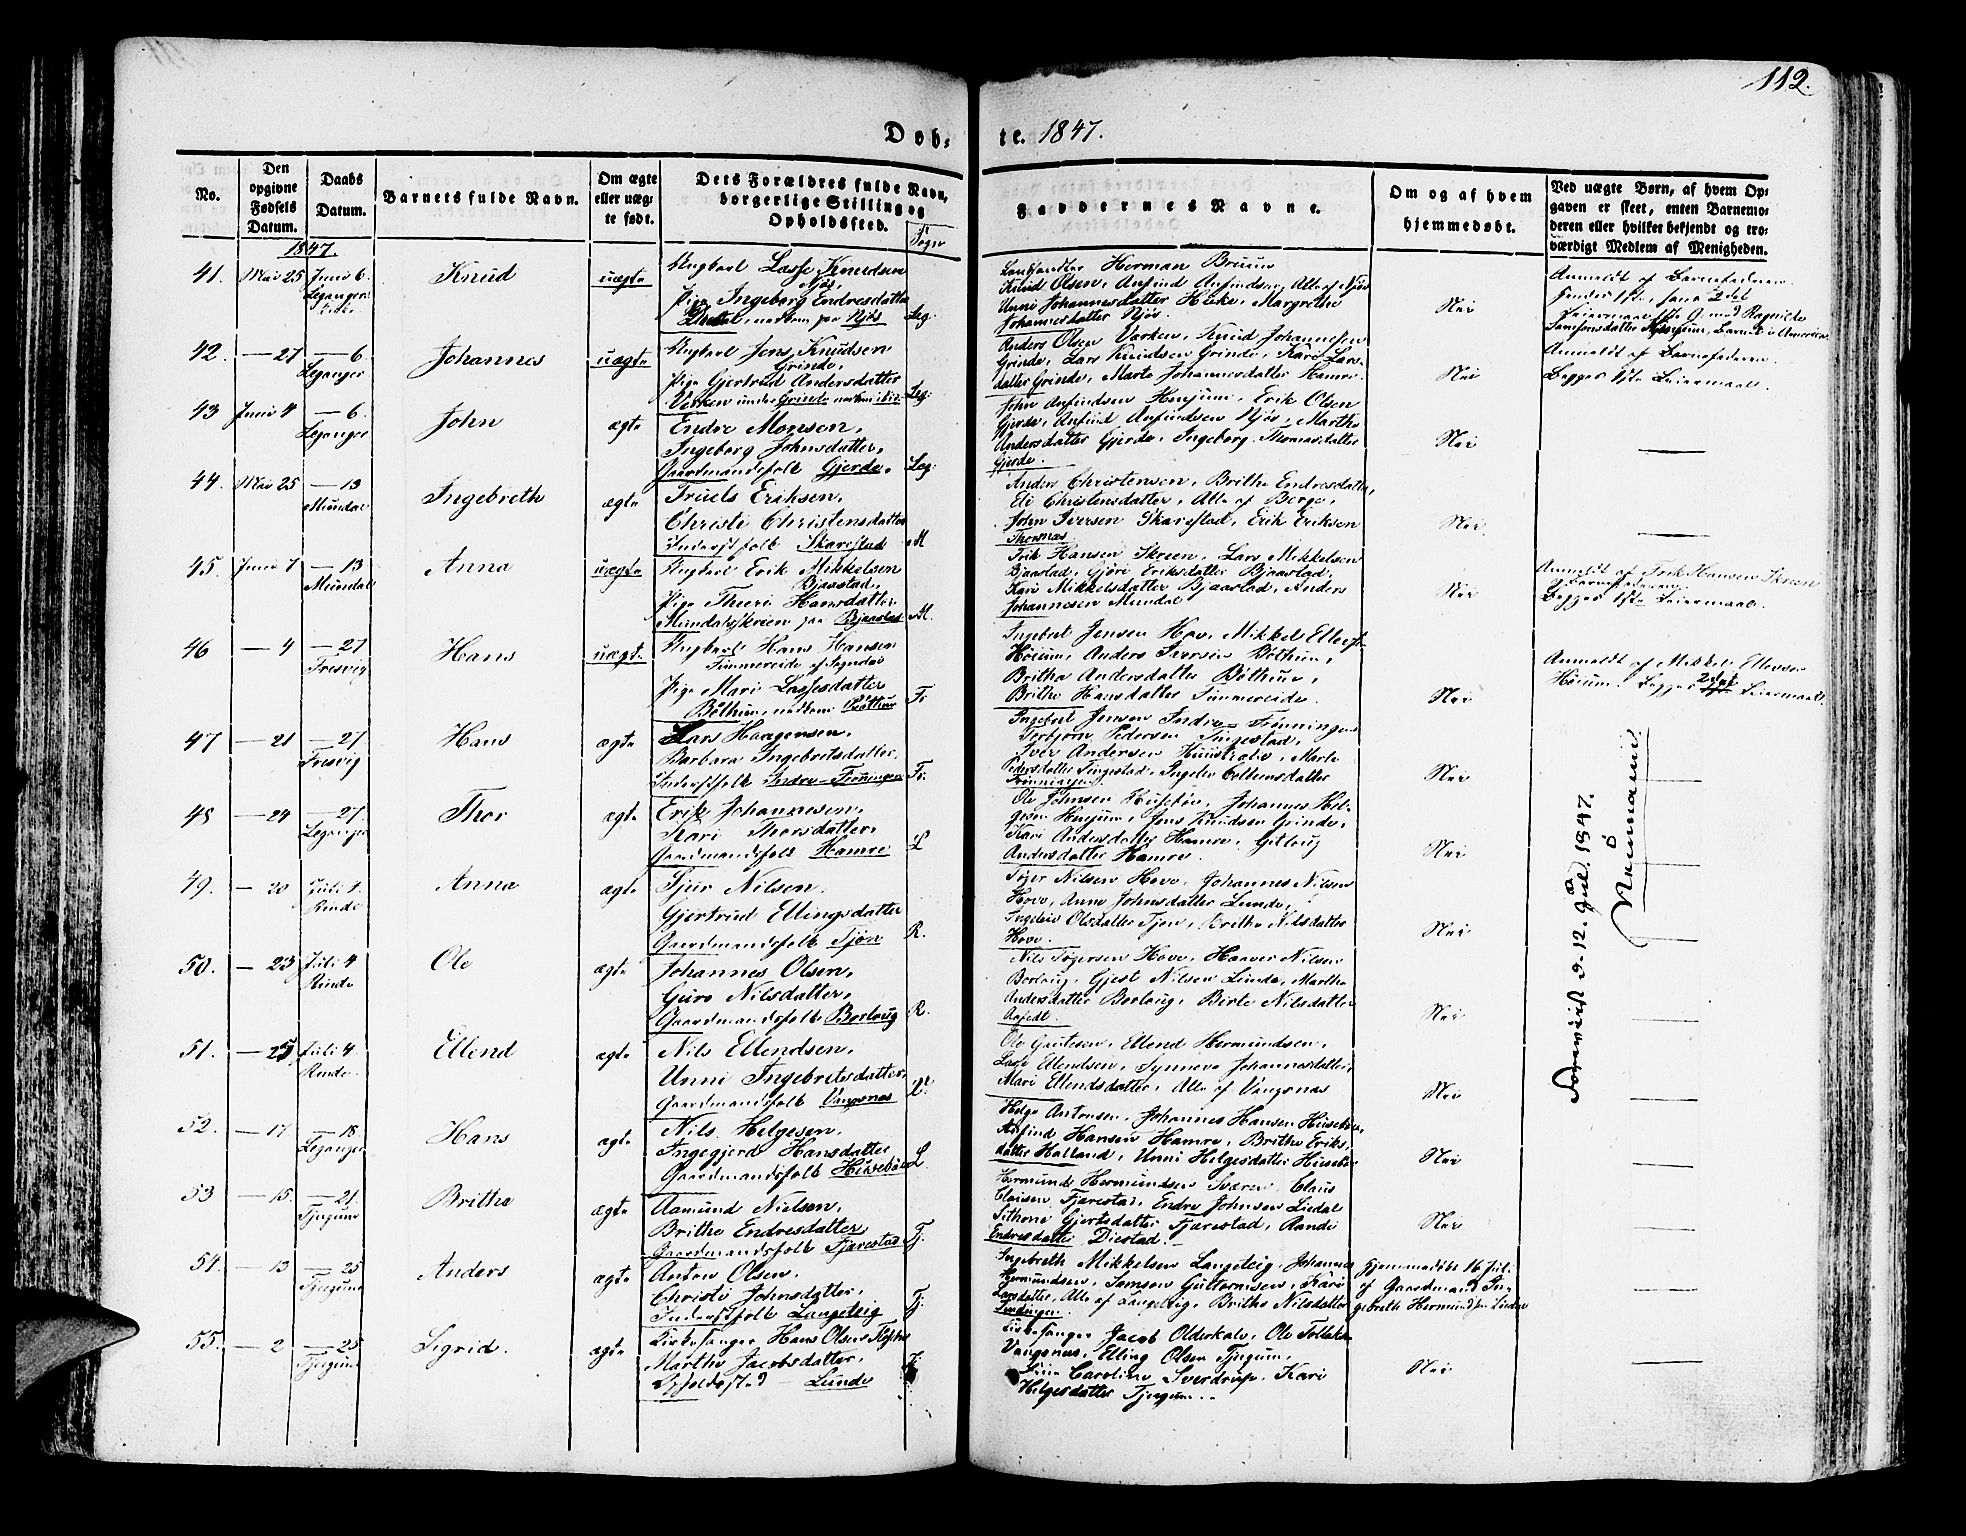 112.
Døb- te. 1847.
No.
Den opgivne Fødsels Datum.
Daabs Datum.
Barnets fulde Navn.
Om ægte eller uægte født.
Dets Forældres fulde Navn, borgerlige Stilling og Opholdssted.
Sogn
Faddernes Navne.
Om og af hvem hjemmedøbt.
Ved uægte Børn, af hvem Opgaven er skeet, enten Barnemoderen eller hvilket bekjendt og troværdigt Medlem af Menigheden.
1847.
41. Mai 25 Juni 6. Knud uægte Ungkarl Lasse Knudsen
Leganger Kirke Njøs,
Pige Ingeborg Endresdatter
nedkom paa Njøs Leg:
Herman Bruun
Olsen, Anfind Anfindsen, Alle af Njøs
Unni Johannesdatter Margrethe
Johannesdatter Njøs.
Nei
Anmeldt af Barnefaderen
42. — 27 — 6 Johannes uægte Ungkarl Jens Knudsen
Leganger Grinde,
Pige Gjertrud Andersdatter
Varken under Grinde Leg:
Anders Olsen Varken, Knud Johannessen
Grinde, Lars Knudsen Grinde, Kari Lars-
datter Grinde, Marte Johannesdatter Hamre.
Nei
Anmeldt af Barnefaderen.
Begges 1ste Leiermaal.
43 Juni 4 — 6. John ægte Endre Monsen,
Leganger Ingeborg Johnsdatter,
Gaardmandsfolk Gjerde. Leg:
John Anfindsen Henjum, Erik Olsen
Gjerde, Anfind Anfindsen Njøs, Marthe
Andersdatter Gjerde, Ingeborg Thomasdatter
Gjerde.
Nei
44. Mai 25 — 13 Ingebreth ægte Truels Eriksen,
Mundal Christi Christensdatter
Inderstfolk Skarestad M
Anders Christensen, Brithe Endresdatter,
Eli Christensdatter, Alle af Berge,
John Iversen Skarestad, Erik Eriksen
Nei
45. Juni 7 — 13 Anna uægte Ungkarl Erik Mikkelsen
Mundal Bjaastad,
Pige Thuri Hansdatter
Mundalsskreen paa Bjaastad M.
Erik Hansen Skreen, Lars Mikkelsen
Bjaastad, Gjøri Eriksdatter Bjaastad,
Kari Mikkelsdatter Bjaastad, Anders
Johannesen Mundal
Nei
Anmeldt af Erik Hansen Skreen
Begges 1ste Leiermaal.
46 — 4 — 27 Hans uægt. Ungkarl Hans Hansen
Fresvig Timmereide af Sogndal
Pige Mari Lassesdatter
Bøthun, nedkom Bøthun Fr
Ingebret Jensen Hov, Mikkel Ellefsen
Høium, Anders Iversen Bøthun,
Britha Andersdatter Bøthun,
Brithe Hansdatter Timmereide.
Nei
Anmeldt af Mikkel Ellevsen
Høium. Begges 2det Leiermaal.
47 — 21 — 27. Hans ægte Lars Haagensen,
Fresvig Barbara Ingebretsdatter
Inderstfolk Indre-Frønningen Fr:
Ingebret Jensen Indre-Frønningen
Torbjørn Pedersen Tingestad,
Iver Andersen Marte
Pedersdatter Tingestad,
Frønningen
Nei
48 — 24 — 27. Thor ægte Erik Johannesen,
Leganger Kari Thorsdatter,
Gaardmandsfolk Hamre L
Ole Johnsen Husebø, Johannes Hel-
gesen Henjum, Jens Knudsen Grinde,
Kari Andersdatter Hamre, Gitlaug
Andersdatter Hamre.
Nei
49. — 20 Juli 4. Anna ægte Sjur Nilsen.
Rinde Gjertrud Ellingsdatter
Gaardmandsfolk Tjøn R.
Tøger Nilsen Hove, Johannes Nilsen
Hove, Anne Johnsdatter Lunde,
Ingeleiv Olsdatter Tjøn, Brithe Nilsdatter
Hove.
Nei
50. — 23 Juli 4 Ole ægte Johannes Olsen,
Rinde Guro Nilsdatter,
Gaardmandsfolk Borlaug R.
Nils Tøgersen Hove, Haaver Nilsen
Borlaug, Gjest Nilsen Lunde, Marthe
Andersdatter Borlaug, Birte Nilsdatter
Nei
51. — 25 Juli 4 Ellend ægte Nils Ellendsen,
Rinde. Unni Ingebretsdatter,
Gaardmandsfolk Vangsnæs
Ole Gautesen, Ellend Hermundsen,
Lasse Ellendsen, Synneve Johannesdatter,
Mari Ellendsdatter, Alle af Vangsnæs
Nei
52. — 17 — 18 Hans ægte Nils Helgesen,
Leganger Ingegjerd Hansdatter
Gaardmandsfolk Husebø L.
Helge Antonsen, Johannes Hansen Husebøe,
Anfind Hansen Hamre, Brithe Eriks-
datter Halland, Unni Helgesdatter Husebø
Nei
53 — 15. — 21. Brithe ægte Aamund Nielsen,
Tjugum Brithe Endresdatter
Gaardmandsfolk Fjærestad Tj.
Hermund Hermundsen Sværen, Claus
Clausen Fjærestad, Endre Johnsen Liedal
Sithone Gjertsdatter Fjærestad, Randi
Endresdatter Diestad.
Nei
54. — 13 — 25 Anders ægte Anton Olsen.
Tjugum Christi Johnsdatter,
Inderstfolk Langeteig Tj.
Ingebreth Mikkelsen Langeteig, Johannes
Hermundsen, Samson Guttormsen, Kari
Larsdatter, Alle af Langeteig, Brithe Nilsdatter
Hjemmedøbt 16 Juli
af Gaardmand In-
gebreth Hermundsen
55. — 2 — 25 Sigrid. ægte Kirkesanger Hans Olsen
Tjugum Marthe Jacobsdatter,
Opholdssted — Lunde Tj.
Kirkesanger Jacob Olderkalv, Ole
Vangsnæs, Elling Olsen Tjugum,
Caroline Sverdrup, Kari
Helgesdatter Tjugum.
Nei
d. 12. 1847.